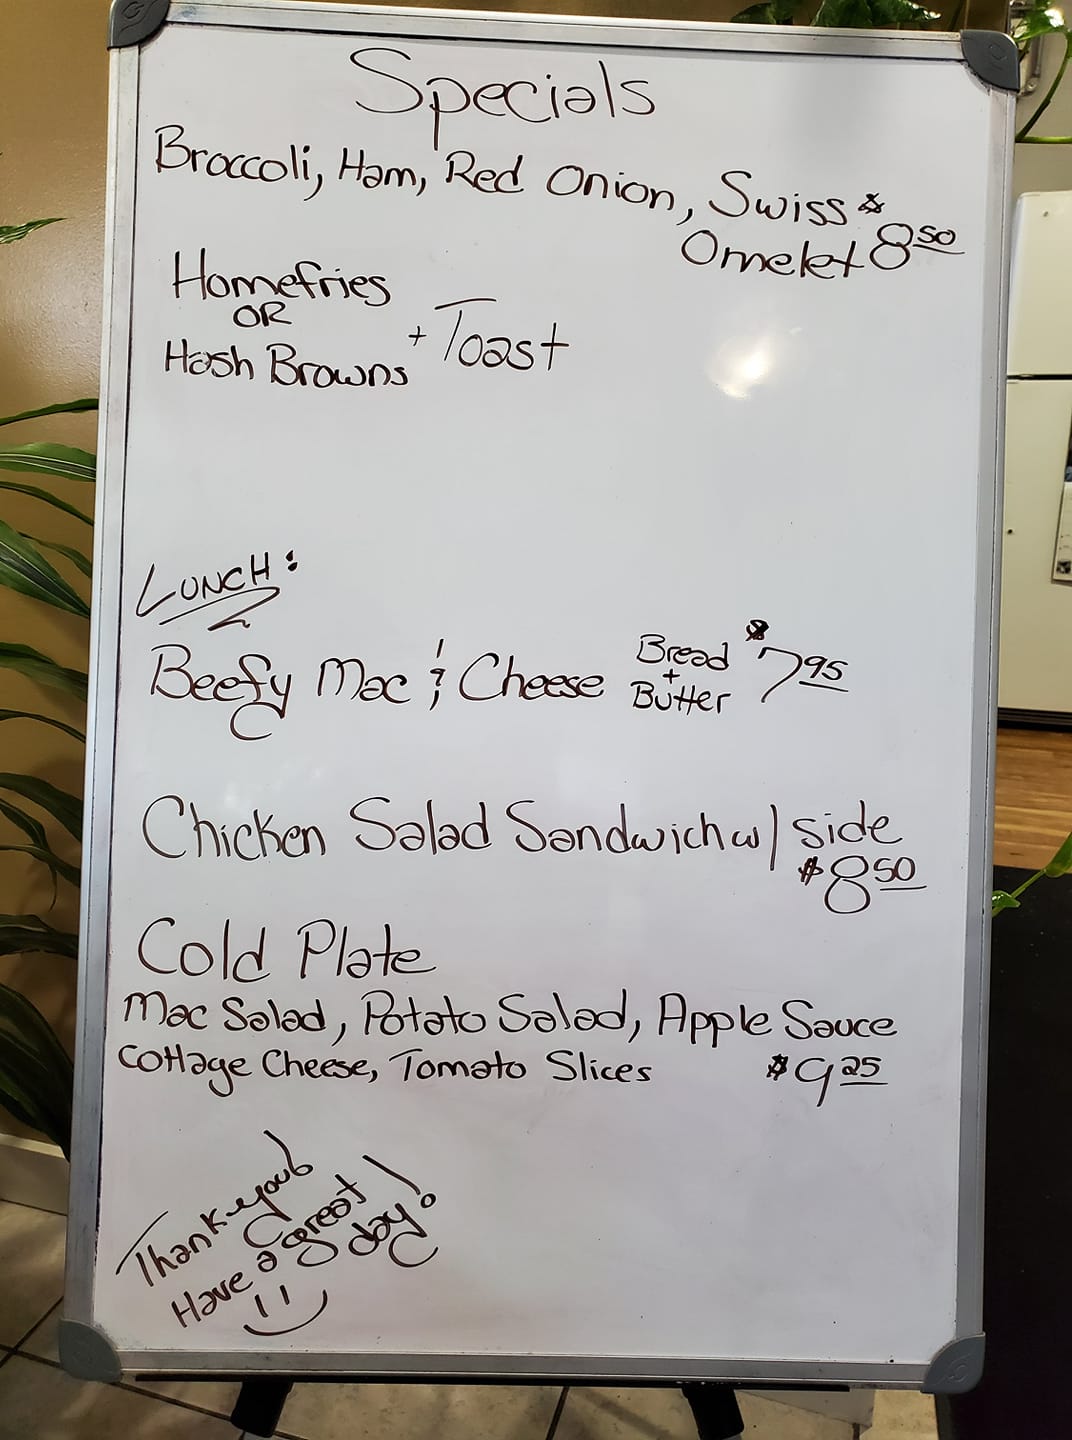 Specials
Broccoli, Ham, Red Onion, Swiss $
Omelet 8 50
Homefries
OR
Hash Browns + Toast
LUNCH:
Beefy Mac & Cheese Bread + Butter $7 95
Chicken Salad Sandwich w/ side
$8 50
Cold Plate
Mac Salad, Potato Salad, Apple Sauce
Cottage Cheese, Tomato Slices $9 25
Thank-you!
Have a great
day!